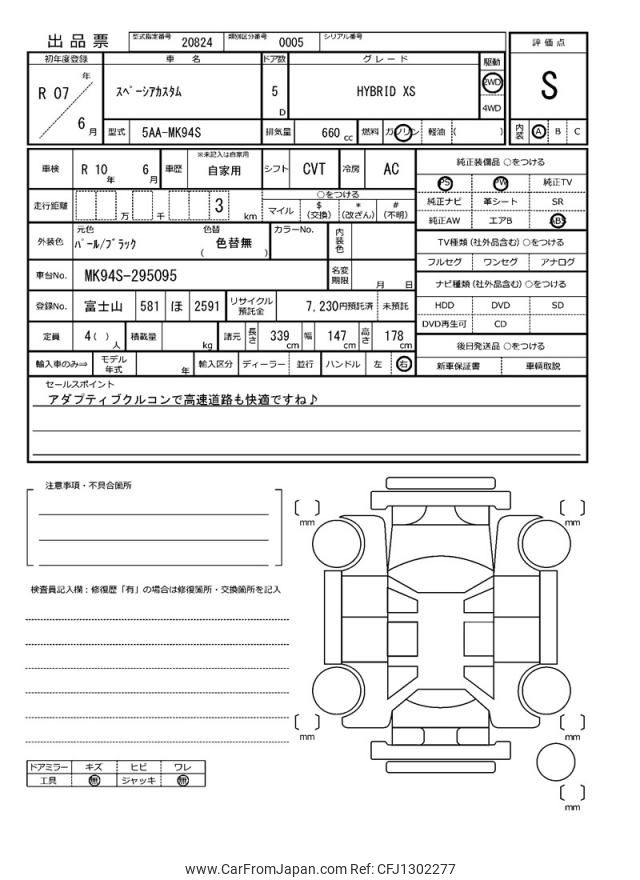 出品票 型式指定番号 20824 類別区分番号 0005 シリアル番号
評価点
S
内装 A B C
初年度登録 車名 ドア数 グレード 駆動
R 07 年 6 月 スペーシアカスタム 5 D HYBRID XS 2WD 4WD
型式 5AA-MK94S 排気量 660 cc 燃料 ガソリン 軽油 ( )
車検 R 10 年 6 月 車歴 ※未記入は自家用 自家用 シフト CVT 冷房 AC
走行距離 万 千 3 km ○をつける マイル $ (交換) * (改ざん) # (不明)
外装色 元色 パール/ブラック 色替 ( 色替無 ) カラーNo. 内装色
車台No. MK94S-295095 名変期限 月 日
登録No. 富士山 581 ほ 2591 リサイクル預託金 7,230円預託済 未預託
定員 4( ) 人 積載量 kg 諸元 長さ 339 cm 幅 147 cm 高さ 178 cm
輸入車のみ⇒ モデル年式 年 輸入区分 ディーラー 並行 ハンドル 左 右
純正装備品 ○をつける
PS PW 純正TV
純正ナビ 革シート SR
純正AW エアB ABS
TV種類 (社外品含む) ○をつける
フルセグ ワンセグ アナログ
ナビ種類 (社外品含む) ○をつける
HDD DVD SD
DVD再生可 CD
後日発送品 ○をつける
新車保証書 車輌取説
セールスポイント
アダプティブクルコンで高速道路も快適ですね♪
注意事項・不具合箇所
検査員記入欄:修復歴「有」の場合は修復箇所・交換箇所を記入
mm
mm
mm
mm
mm
ドアミラー キズ ヒビ ワレ
工具 無 ジャッキ 無
www.CarFromJapan.com Ref: CFJ1302277